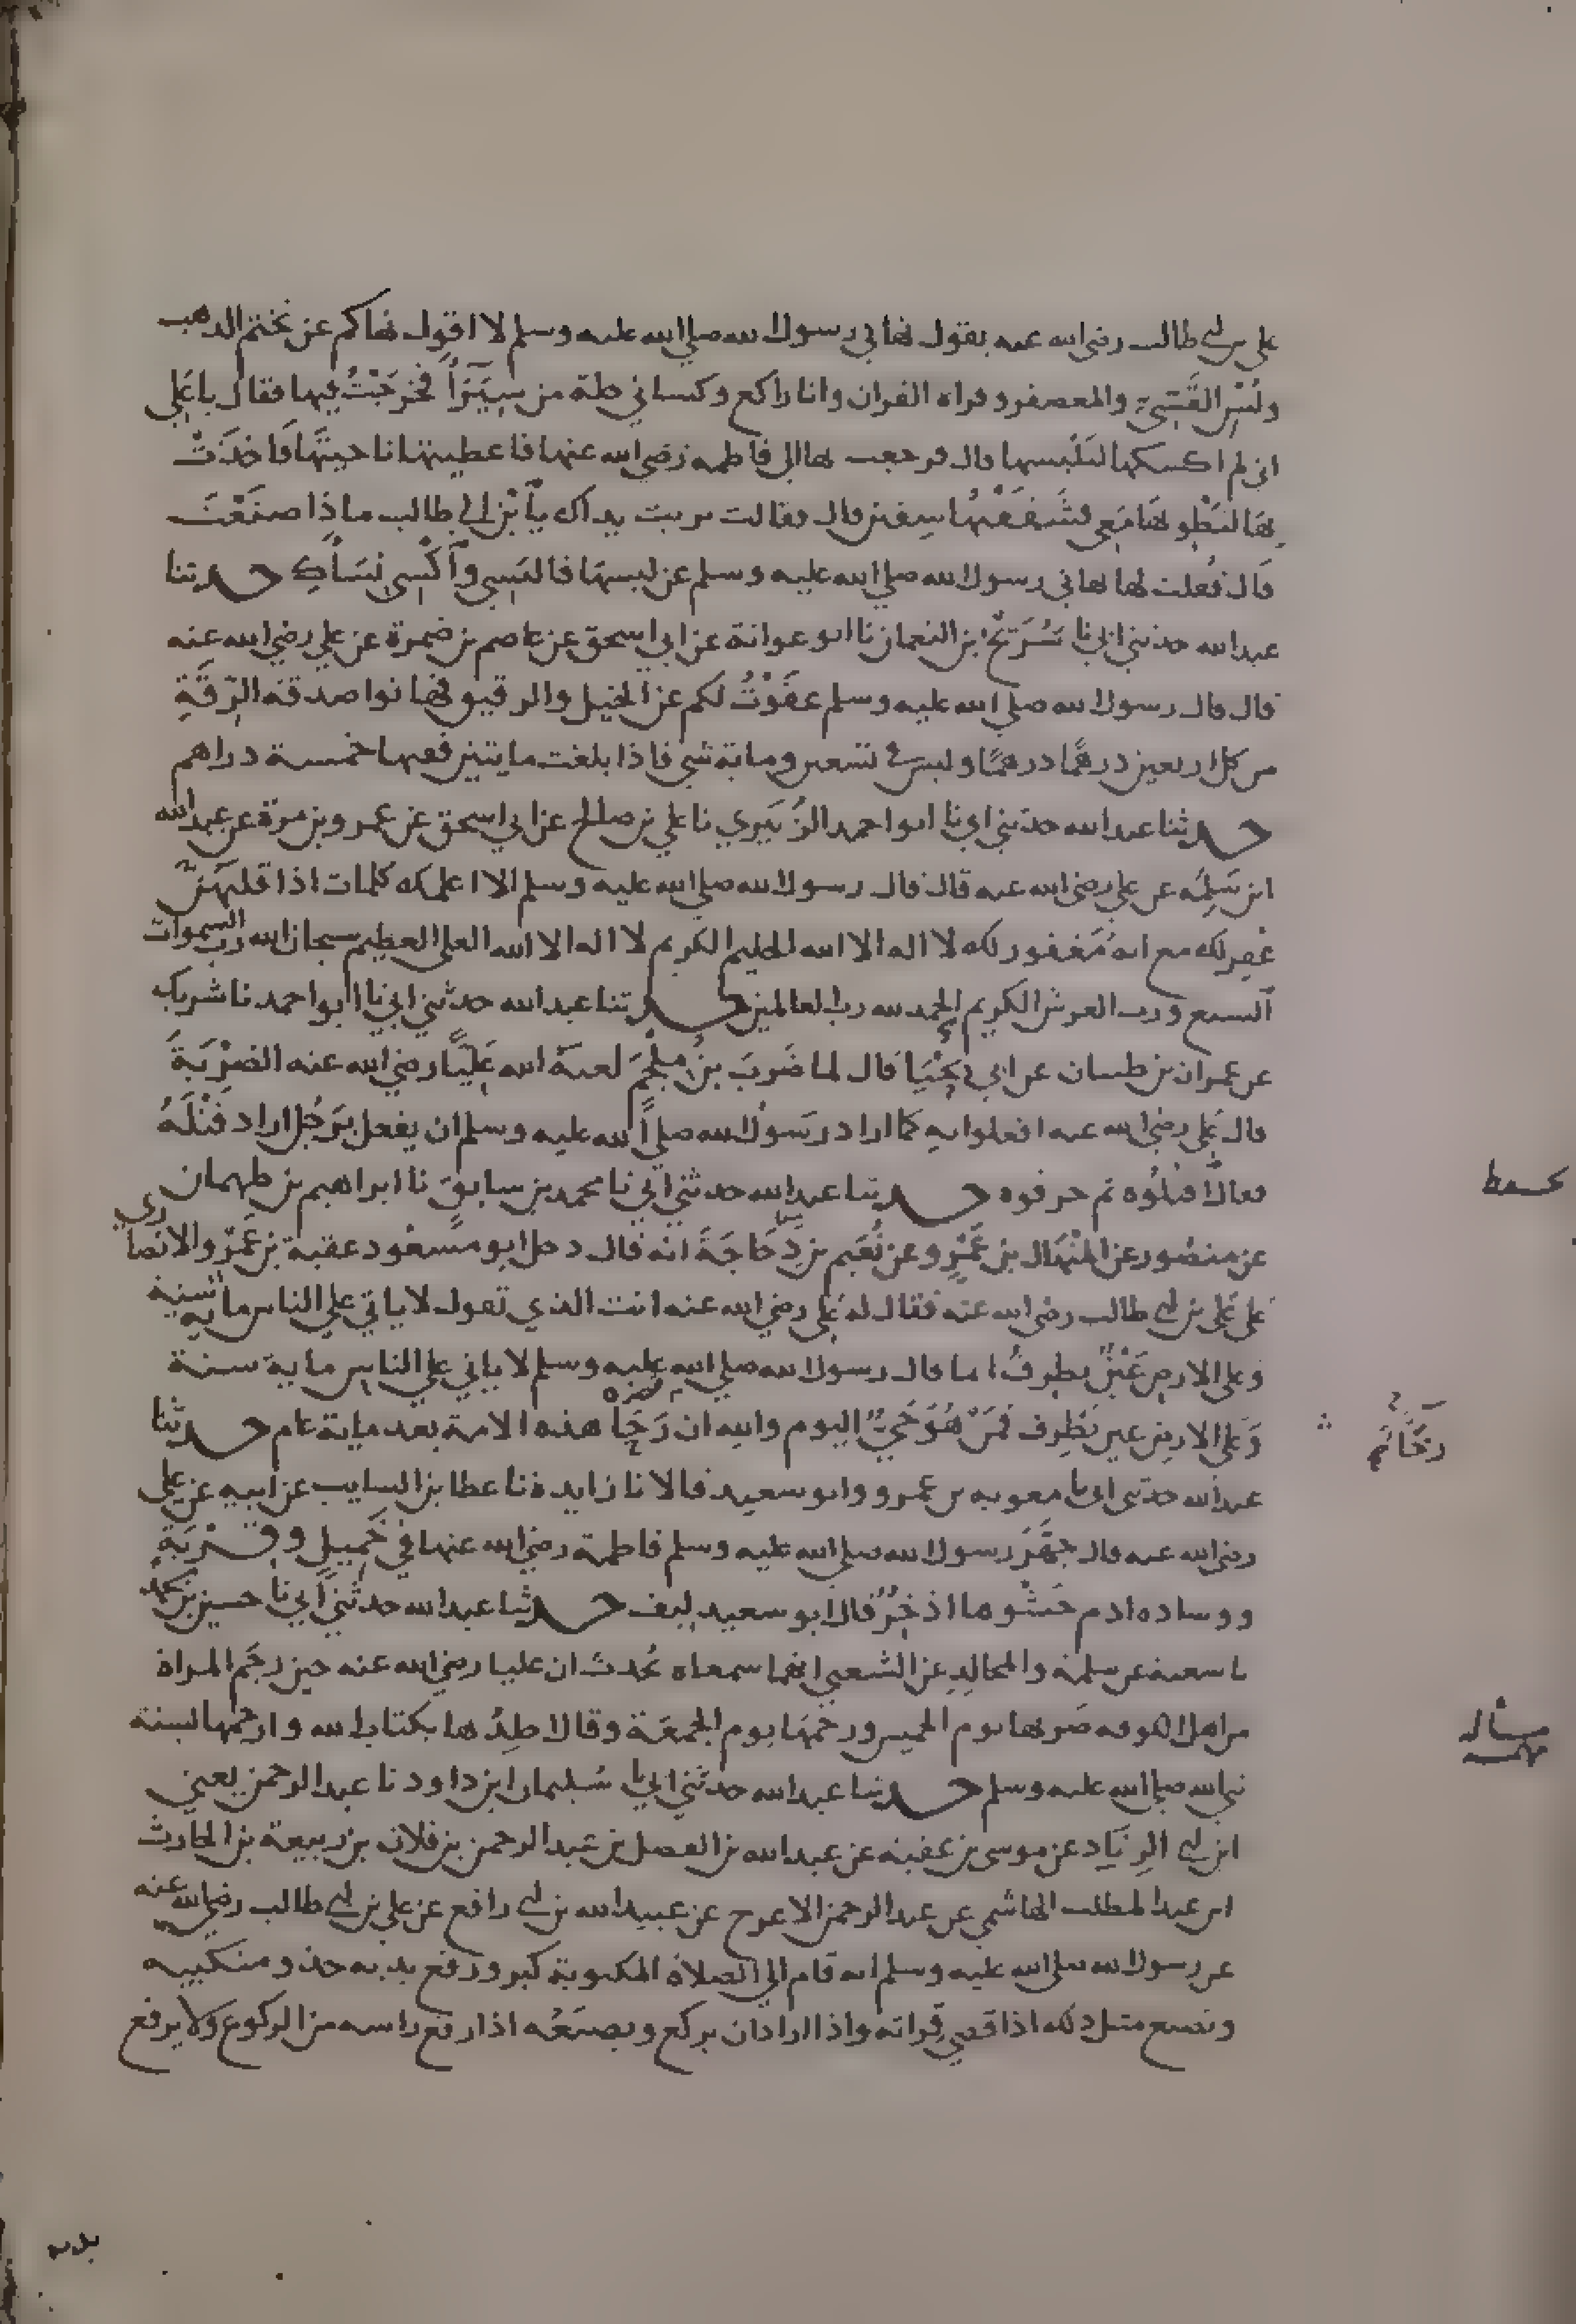 علي بن ابي طالب رضي الله عنه يقول نهاني رسول الله صلي الله عليه وسلم لا اقول نهاكم عن تختم الذهب
ولُبْسِ القَسّيِّ والمعصفر وقراه القران وانا راكع وكساني حلة من سِيَرَآءَ فخرجْتُ فيها فقال يا عَلي
اني لم اكسكها لتَلْبسها قال فرجعت بها الي فاطمه رضي الله عنها فاعطيتها ناحيتَها فاخذَتْ
بهَا لتَطْوِيهَا مَعِي فشَقَقْتُها بثنتين قال فقالت تربت يداك يآبْن ابي طالب ماذا صنَعْتَ
قال فقلت لها نهاني رسول الله صلي الله عليه وسلم عن لبسهَا فالبَسِي وٱكْسِي نِسَآكِ حدثنا
عبد الله حدثني ابي نا سُرَيْج ابن النعمان نا ابو عوانة عن ابي اسحق عن عاصم بن ضمرة عن علي رضي الله عنه
قال قال رسول الله صلي الله عليه وسلم عفَوْتُ لكم عن الخيل والرقيق فهاتوا صدقة الرِّقَةِ
من كل اربعين درهمًا درهمًا وليس في تسعين وماية شي فاذا بلغت مايتين ففيها خمسة دراهم
حدثنا عبد الله حدثني ابي نا ابو احمد الزُّبَيري نا علي بن صالح عن ابي اسحق عن عمرو بن مرة عن عبد الله
ابن سَلِمَه عن علي رضي الله عنه قال قال رسول الله صلي الله عليه وسلم الا اعلمك كلمات اذا قلتهنّ
غُفِر لك مع انه مَغفور لك لا اله الا الله الحليم الكريم لا اله الا الله العلي العظيم سبحان الله رب السموات
السبع ورب العرش الكريم الحمد لله رب العالمين حدثنا عبد الله حدثني ابي نا ابو احمد نا شريك
عن عمران بن ظبيان عن ابي يَحْيَا قال لما ضَرَبَ بنُ مُلْجَمَ لعنهُ الله عَلِيًّا رضي الله عنه الضَرْبَةَ
قال عَلي رضي الله عنه افعلوا به كما اراد رَسُولُ الله صلي الله عليه وسلم ان يفعل بِرَجُل اراد قَتْلَهُ
فقال اقتُلُوه ثم حرقوه حدثنا عبد الله حدثني ابي نا محمد بن سابق نا ابراهيم بن طهمان
عن منصُور عن المِنْهَال بن عَمْرٍو عن نُعَيم بن دَِجَاجَةَ انه قال دخل ابو مسعُود عقبة بن عَمْرو الانصاري
علي عَلي بن ابي طالب رضي الله عنه فقال له عَلي رضي الله عنه انت الذي تقول لا ياتي علي الناس مايه سنة
وعلي الارض عَيْنٌ تطرِفُ انما قال رسول الله صلي الله عليه وسلم لا ياتي علي الناس ماية سنة
وَعلي الارض عين تَطْرِف مِمَنْ هُوَ حَيٌّ اليوم والله ان رَجَا هذه الامة بعد ماية عام حدثنا
عبد الله حدثني ابي نا معويه بن عمرو وابو سعيد قالا نا زايدة نا عطا بن السايب عن ابيه عن علي
رضي الله عنه قال جهَّزَ رسول الله صلي الله عليه وسلم فاطمة رضي الله عنها في خَمِيل وقِرْبَةٍ
ووساده ادم حَشْوها اذخِرٌ قال ابو سعيد ليف حدثنا عبد الله حدثني ابي نا حسين بن محمد
نا شعبة عن سلمة والمجالِدِ عن الشعبي انهما سمعاه يُحدث ان عليا رضي الله عنه حين رجَم المراة
من اهل الكوفه ضَربها يوم الخميس ورجمَهَا يوم الجمعَة وقال اجلِدُها بكتاب الله وارجمُها بسنة
نبي الله صلي الله عليه وسلم حدثنا عبد الله حدثني ابي نا سُليمان ابن داود نا عبد الرحمن يعني
ابن ابي الزِنَاد عن موسي بن عقبَة عن عبد الله بن الفضل بن عبد الرحمن بن فلان بن ربيعة بن الحارث
ابن عبد المطلب الهاشمي عن عبد الرحمن الاعرج عن عبيد الله بن ابي رافع عن علي بن ابي طالب رضي الله عنه
عن رسول الله صلي الله عليه وسلم انه قام الي الصلاة المكتوبة كبر ورفع يديه حذو منكبيه
وتصنع مثل ذلك اذا قضي قراته واذا اراد ان يركع ويصنعُه اذا رفع راسه من الركوع ولا يرفع
يديه